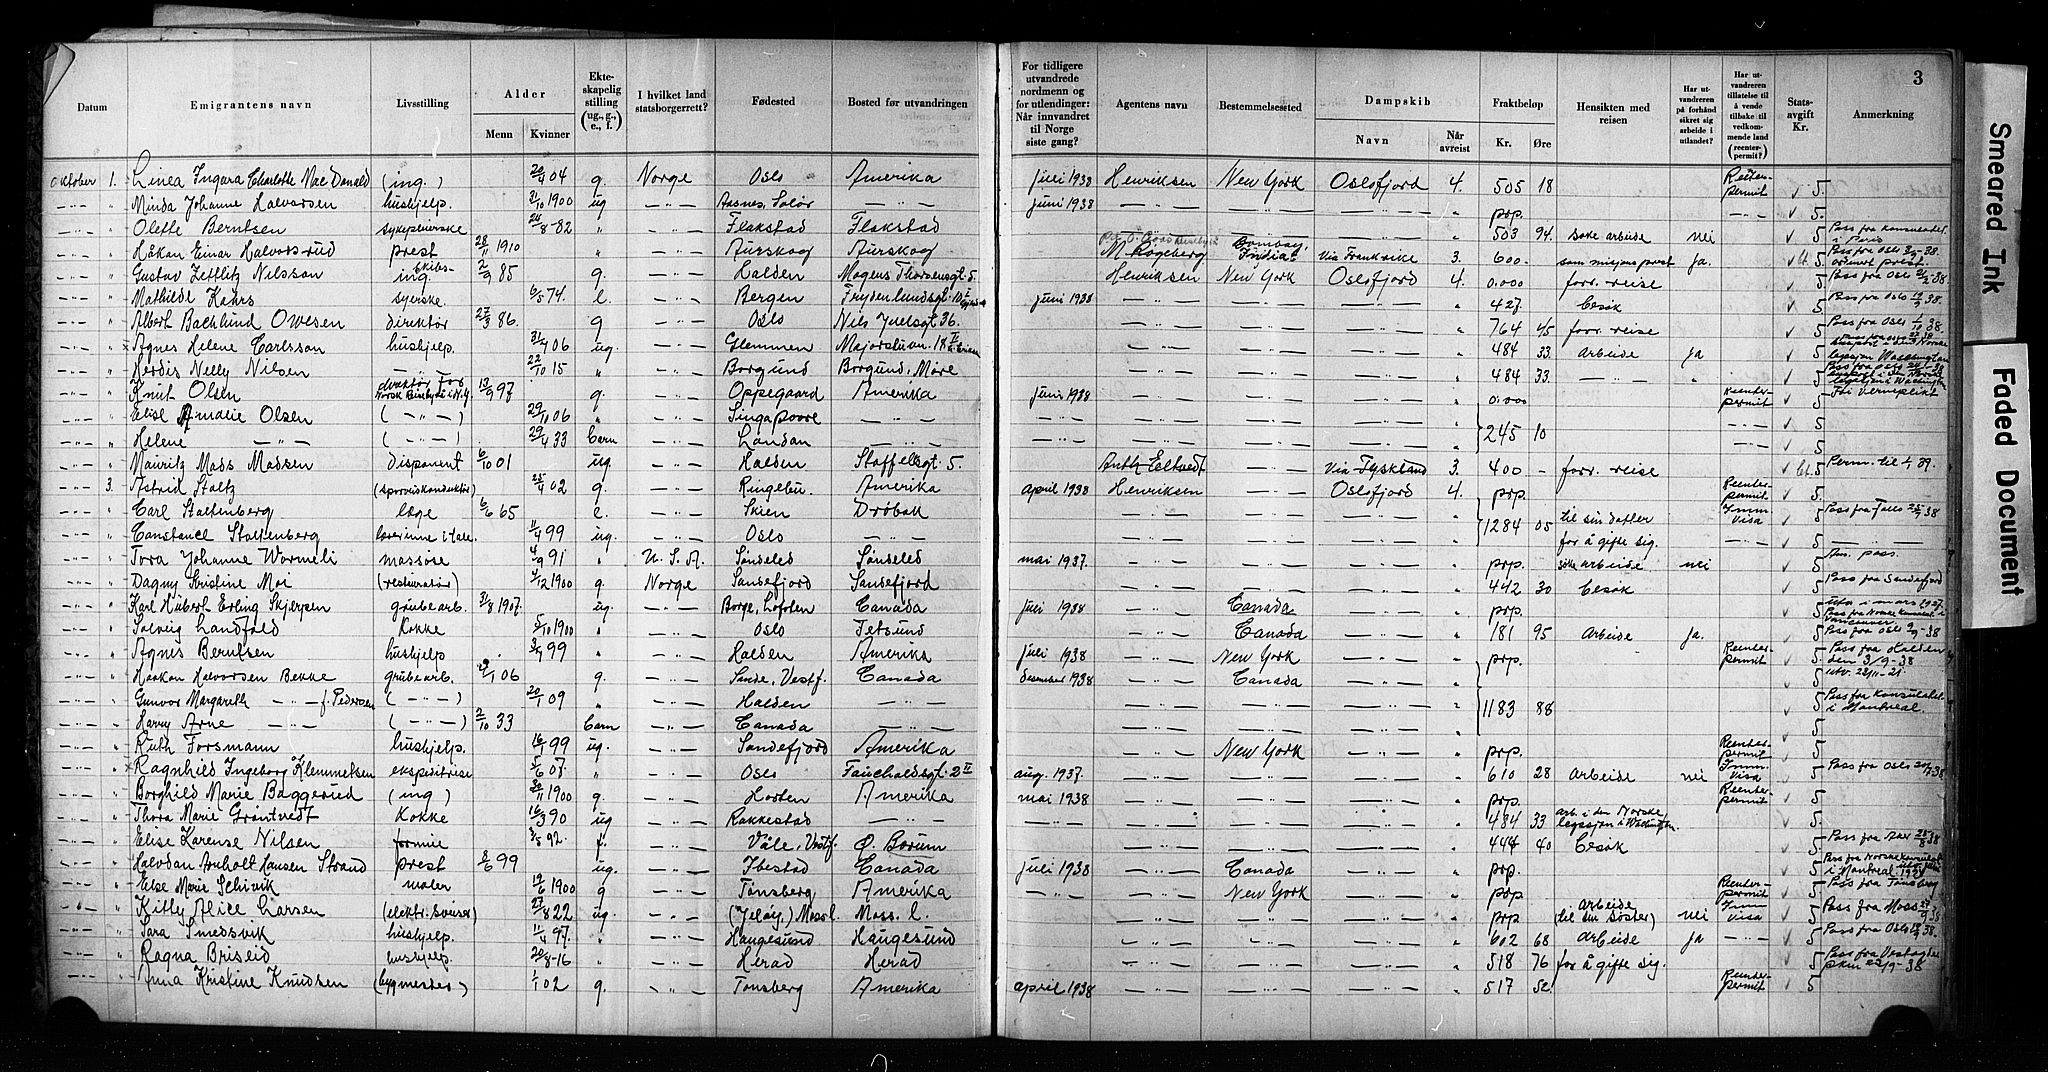 3
Datum
Emigrantens navn
Livsstilling
Alder
Menn
Kvinner
Ekte-
skapelig
stilling
(ug., g.,
e., f.)
I hvilket land
statsborgerrett?
Fødested
Bosted før utvandringen
For tidligere
utvandrede
nordmenn og
for utlendinger:
Når innvandret
til Norge
siste gang?
Agentens navn
Bestemmelsessted
Dampskib
Navn
Når
avreist
Fraktbeløp
Kr.
Øre
Hensikten med
reisen
Har ut-
vandreren
på forhånd
sikret sig
arbeide i
utlandet?
Har ut-
vandreren
tillatelse til
å vende
tilbake til
vedkom-
mende land
(reenter-
permit?)
Stats-
avgift
Kr.
Anmerkning
Oktober 1. Linea Ingara Charlotte Mac Donald (ing.) 20/4 04 g. Norge Oslo Amerika juli 1938 Henriksen New York Oslofjord 4. 505 18 Reenter-permit 5.
" Minda Johanne Halvorsen hushjelp. 31/10 1900 ug — " — Aasnes, Solør — " — juni 1938 — " — — " — — " — " prp. — " — 5.
" Olette Berntsen sykepleierske 24/8 82 " — " — Flakstad Flakstad — " — — " — — " — " 503 94. Søke arbeide nei 5 Pass fra konsulatet i Paris
" Håkon Einar Halvorsrud prest 28/11 1910 " — " — Aurskog Aurskog M. Rogeberg Bombay, India Via Frankrike 3. 600 - som misjonsprest Ja. 5
" Gustav Zettlitz Nilsson Skibs-ing. 2/9 85 g. — " — Halden Mogens Thorsensgt. 5. Henriksen New York Oslofjord 4. 0.000 forr. reise 5
" Mathilde Kahrs syerske 6/5 74. e. — " — Bergen Frydenlundsgt. juni 1938 — " — — " — — " — " 427. Besøk 5
" Albert Bachlund Owesen direktør 27/3 86. g — " — Oslo Nils Juelsgt 36. — " — — " — — " — " 764 45 forr. reise 5
" Agnes Helene Carlsson hushjelp. 31/4 06 ug. — " — Glemmen Majorstuvn. 18 — " — — " — — " — " 484 33. Arbeide Ja 5
" Herdis Nelly Nilsen — " — 22/10 15 " — " — Borgund Borgund, Møre — " — — " — — " — " 484 33. — " — " 5
" Knut Olsen direktør for Norsk 13/9 97 g. — " — Oppegaard Amerika juni 1938 — " — — " — — " — " 0.000 Reenter-permit 5
" Elise Amalie Olsen ( — " — ) 29/10 06 " — " — Singapoore — " — — " — — " — — " — — " — " — " — 5
" Helene — " — ( — " — ) 29/4 33 Barn — " — London — " — — " — — " — — " — — " — " 245 10 — " — 5
" Mauritz Mads Madsen disponent 6/10 01 ug. — " — Halden Staffelsgt. 5. Anth. Eltvedt — " — Via Tyskland 3. 400 - forr. reise 5 Perm. til 1/1 39.
3. Astrid Stoltz (sporveiskonduktør) 25/4 02 g. — " — Ringebu. Amerika april 1938 Henriksen — " — Oslofjord 4. prp. Reenter-permit 5.
" Carl Stoltenberg læge 6/6 65 e. — " — Skien Drøbak — " — — " — — " — " 1284 05 til sin datter Imm Visa 5
" Constance Stoltenberg 11/4 99 ug. — " — Oslo — " — — " — — " — — " — " for å gifte sig. 5 — " —
" Tora Johanne Wormeli massøse 4/9 91 " U. S. A. Søndeled Søndeled mai 1937. — " — — " — — " — " prp. søke arbeide nei 5 Am. pass.
" Dagny Kristine Moi (restauratør) 4/12 1900 g. Norge Sandefjord Sandefjord — " — — " — — " — " 442 30 Besøk 5 Pass fra Sandefjord
" Karl Hubert Erling Skjerpen grubearb. 31/8 1907. ug. — " — Borge, Lofoten Canada juli 1938 — " — Canada — " — " prp. 5
" Solveig Landfald Kokke 5/10 1900 " — " — Oslo Fetsund — " — Canada — " — " 181 95 Arbeide Ja. 5 Pass fra Oslo 9/9-38
" Agnes Berntsen hushjelp 3/7 99 " — " — Halden Amerika juli 1938 — " — New York — " — " prp. Reenter-permit 5 Pass fra Halden den 3/9-38
" Haakon Halvorsen Bekke grubearb. 06 g. — " — Sande, Vestf. Canada desember 1938 — " — Canada — " — " 5 utv. 22/11-21.
" Gunvor Margareth — " — f. Pedersen ( — " — ) 20/1 09 " — " — Halden — " — — " — — " — — " — " 1183 88 5 Pass fra konsulatet i Montreal.
" Harry Arne — " — ( — " — ) 2/10 33 Barn — " — Canada — " — — " — — " — — " — " 5
" Ruth Forsmann hushjelp. 16/1 99 ug. — " — Sandefjord Amerika — " — New York — " — " prp. Reenter-permit 5
" Ragnhild Ingeborg Klemmetsen ekspeditrise 5/6 07. " — " — Oslo Fauchaldsgt. 2 II aug. 1937. — " — — " — — " — " 610 28 Arbeide nei Imm Visa 5 Pass fra Oslo
" Borghild Marie Baggerud (ing) 30/11 1900 g. — " — Horten Amerika mai 1938 — " — — " — — " — " prp. Reenter-permit 5.
" Thora Marie Grøntvedt Kokke 16/3 90 ug — " — Rakkestad — " — — " — — " — — " — " 484 33 arb. i den Norske legasjon i Washington. 5
" Elise Karense Nilsen formie 3/5 92. f. — " — Våle, Vestf. Ø. Borum — " — — " — — " — " 444 40 Besøk 5
" Halvdan Anholt Hansen Strand prest 8/6 99 ug. — " — Ibestad Canada juli 1938 — " — Canada — " — " prp. 5 Pass fra Norske konsulat i Montreal
" Else Marie Selivik maler 19/6 1900 g — " — Tønsberg Amerika — " — — " — New York — " — " prp Reenter-permit 5 Pass fra Tønsberg
" Kitty Alice Larsen (elektr. sveiser) 27/8 22 ug. — " — (Jeløy) Moss l. Moss. l. — " — — " — — " — " prp arbeide (til sin søster) nei Imm Visa 5 Pass fra Moss 27/9 38
" Sara Smedsvik hushjelp. 11/4 97. " — " — Haugesund Haugesund — " — — " — — " — " 602 68 Arbeide Ja — " — 5 Pass fra Oslo
" Ragna Briseid hushjelp 20/8-16 " — " — Herad Herad — " — — " — — " — " 518 76 for å gifte sig. 5 Pass fra Vestagder
" Anna Kristine Knudsen (bygmester) 1/1 02 g. — " — Tønsberg Amerika april 1938 — " — — " — — " — " 517 52. Reenter-permit 5
Smeared Ink
Faded Document